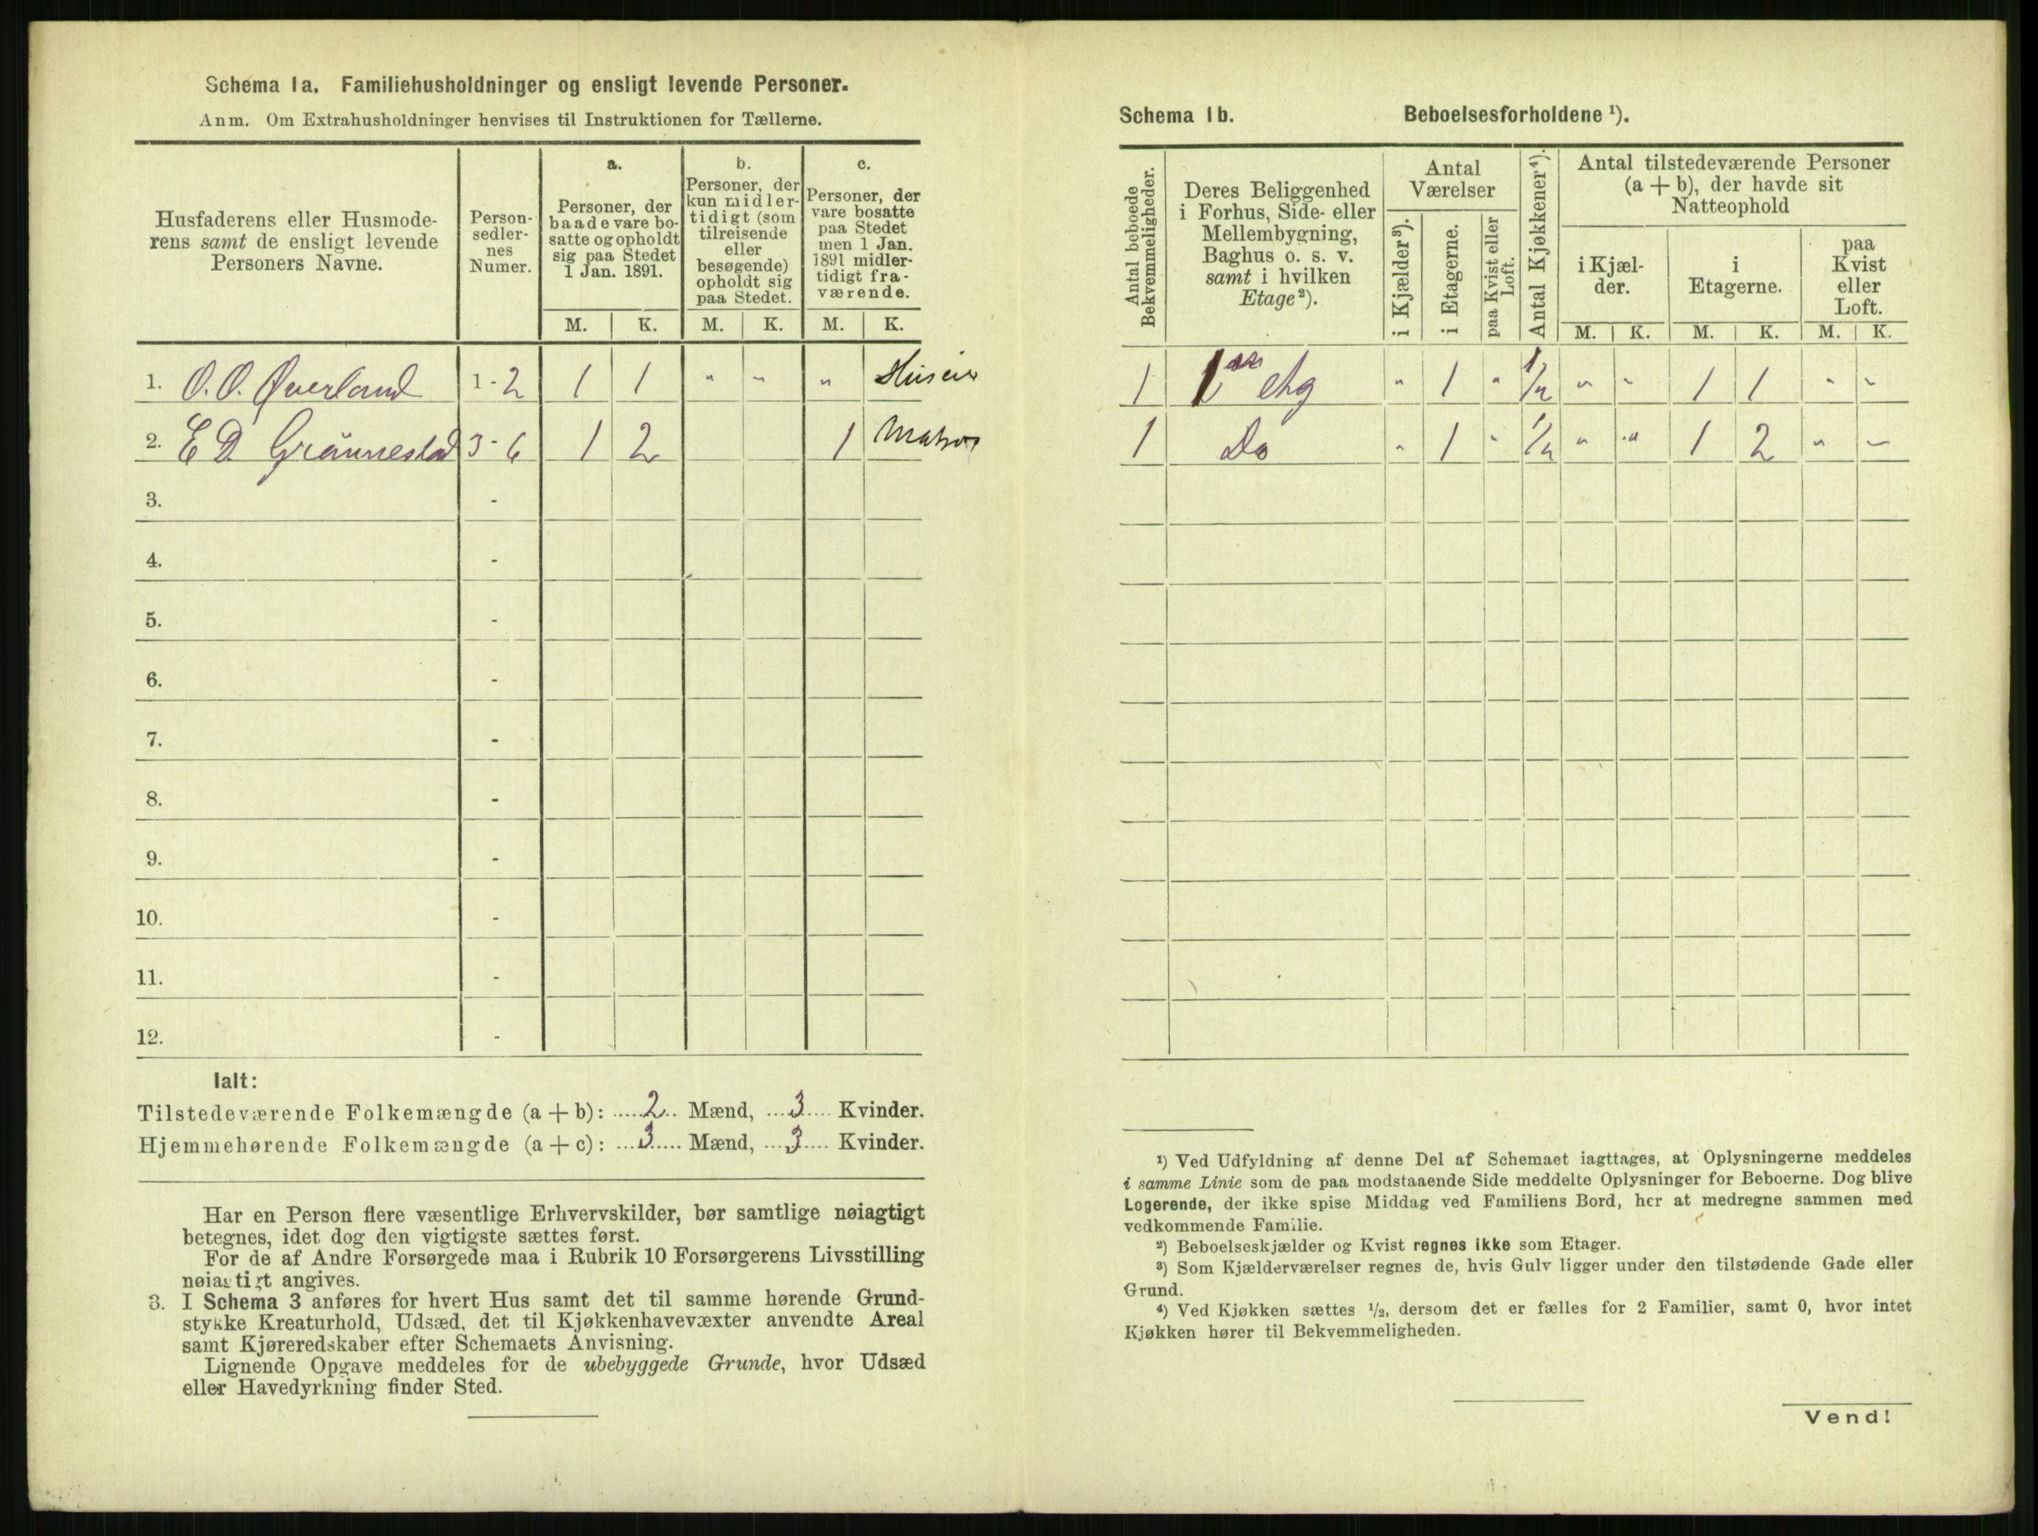 Schema 1a. Familiehusholdninger og ensligt levende Personer.
Anm. Om Extrahusholdninger henvises til Instruktionen for Tællerne.
Husfaderens eller Husmode-
rens samt de ensligt levende
Personers Navne.
Person-
sedler-
nes
Numer.
a.
Personer, der
baade vare bo-
satte og opholdt
sig paa Stedet
1 Jan. 1891.
b.
Personer, der
kun midler-
tidigt (som
tilreisende
eller
besøgende)
opholdt sig
paa Stedet.
c.
Personer, der
vare bosatte
paa Stedet
men 1 Jan.
1891 midler-
tidigt fra-
værende.
M. K. M. K. M. K.
1. O. O. Øverland 1 - 2 1 1 " " " Huseier
2. E D. Grönnestad 3 - 6 1 2 1 Matros
3. -
4. -
5. -
6. -
7. -
8. -
9. -
10. -
11. -
12. -
Ialt:
Tilstedeværende Folkemængde (a + b): 2 Mænd, 3 Kvinder.
Hjemmehørende Folkemængde (a + c): 3 Mænd, 3 Kvinder.
Har en Person flere væsentlige Erhvervskilder, bør samtlige nøiagtigt
betegnes, idet dog den vigtigste sættes først.
For de af Andre Forsørgede maa i Rubrik 10 Forsørgerens Livsstilling
nøiagtigt angives.
3. I Schema 3 anføres for hvert Hus samt det til samme hørende Grund-
stykke Kreaturhold, Udsæd, det til Kjøkkenhavevæxter anvendte Areal
samt Kjøreredskaber efter Schemaets Anvisning.
Lignende Opgave meddeles for de ubebyggede Grunde, hvor Udsæd
eller Havedyrkning finder Sted.
Schema 1b. Beboelsesforholdene ¹).
Antal beboede
Bekvemmeligheder.
Deres Beliggenhed
i Forhus, Side- eller
Mellembygning,
Baghus o. s. v.
samt i hvilken
Etage²).
Antal
Værelser
i Kjælder³).
i Etagerne.
paa Kvist eller
Loft.
Antal Kjøkkener⁴).
Antal tilstedeværende Personer
(a + b), der havde sit
Natteophold
i Kjæl-
der.
i
Etagerne.
paa
Kvist
eller
Loft.
M. K. M. K. M. K.
1 1ste Etg " 1 " 1/2 " " 1 1 " "
1 Do " 1 " 1/2 " " 1 2 " "
¹) Ved Udfyldning af denne Del af Schemaet iagttages, at Oplysningerne meddeles
i samme Linie som de paa modstaaende Side meddelte Oplysninger for Beboerne. Dog blive
Logerende, der ikke spise Middag ved Familiens Bord, her at medregne sammen med
vedkommende Familie.
²) Beboelseskjælder og Kvist regnes ikke som Etager.
³) Som Kjælderværelser regnes de, hvis Gulv ligger under den tilstødende Gade eller
Grund.
⁴) Ved Kjøkken sættes ½, dersom det er fælles for 2 Familier, samt 0, hvor intet
Kjøkken hører til Bekvemmeligheden.
Vend!